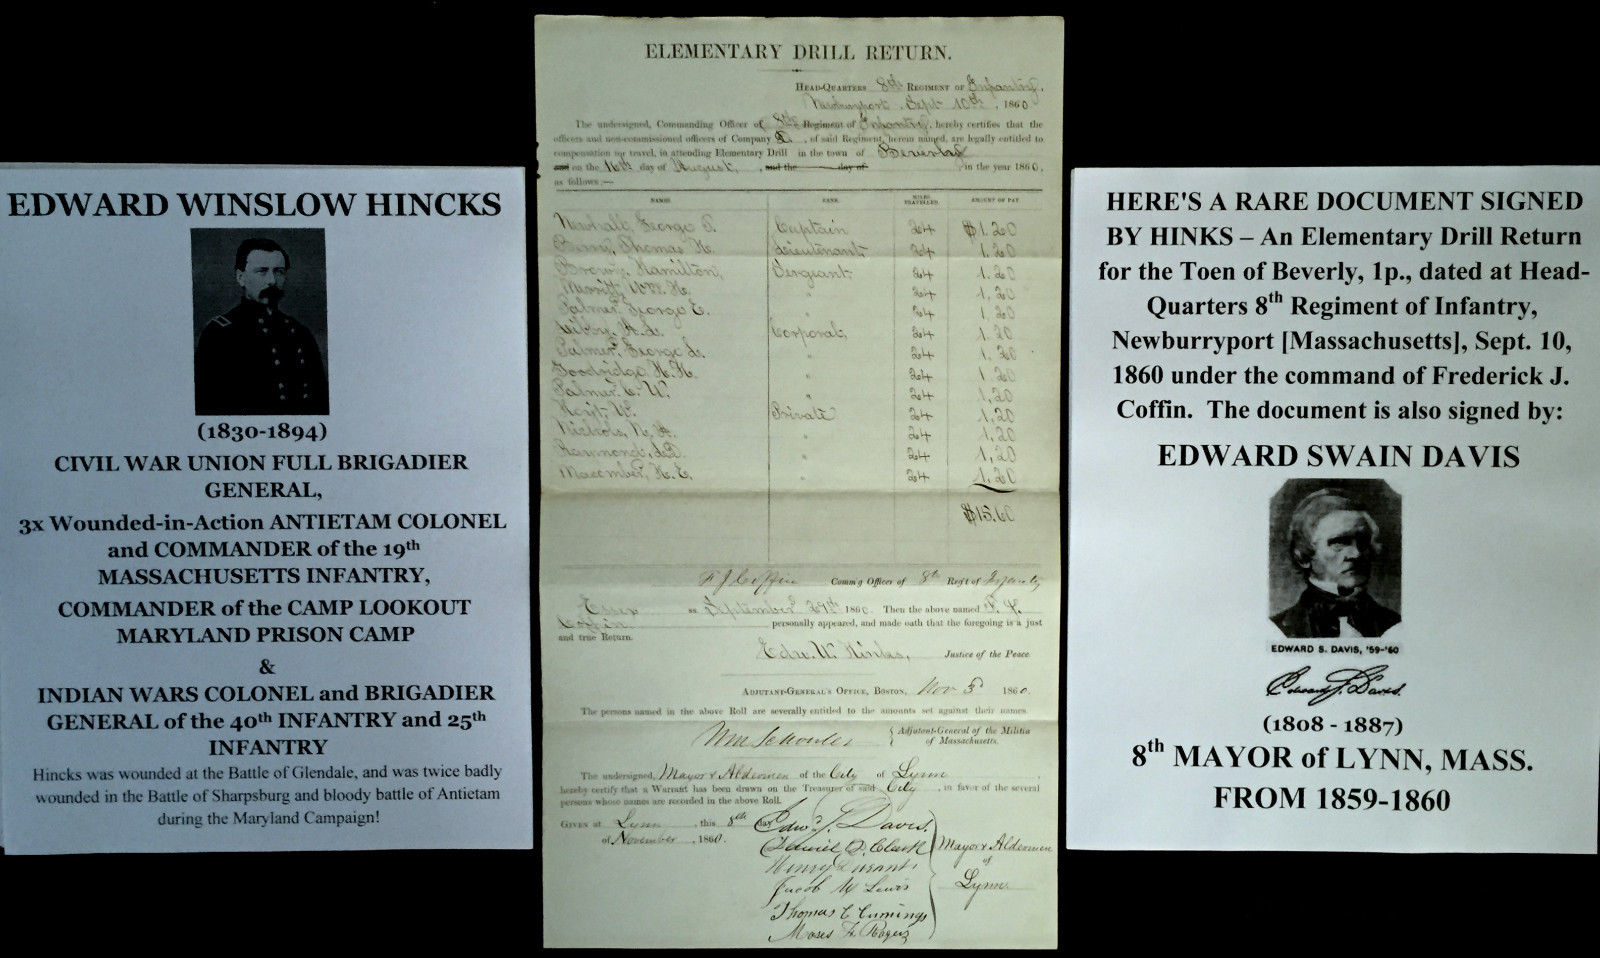 EDWARD WINSLOW HINCKS
(1830-1894)
CIVIL WAR UNION FULL BRIGADIER
GENERAL,
3x Wounded-in-Action ANTIETAM COLONEL
and COMMANDER of the 19th
MASSACHUSETTS INFANTRY,
COMMANDER of the CAMP LOOKOUT
MARYLAND PRISON CAMP
&
INDIAN WARS COLONEL and BRIGADIER
GENERAL of the 40th INFANTRY and 25th
INFANTRY
Hincks was wounded at the Battle of Glendale, and was twice badly
wounded in the Battle of Sharpsburg and bloody battle of Antietam
during the Maryland Campaign!
ELEMENTARY DRILL RETURN.
HEAD-QUARTERS 8th REGIMENT OF Infantry.
Newburyport, Sept 10th, 1860
The undersigned, Commanding Officer of 8th Regiment of Infantry, hereby certifies that the
officers and non-commissioned officers of Company D, of said Regiment, herein named, are legally entitled to
compensation for travel, in attending Elementary Drill in the town of Beverly
and on the 16th day of August, and the day of in the year 1860,
as follows:—
NAMES. RANK. MILES TRAVELLED. AMOUNT OF PAY.
Newhall, George T. Captain 24 $1.20
Berry, Thomas H. Lieutenant 24 1.20
Brown, Hamilton, Sergeant 24 1.20
Merritt, Wm. H. " 24 1.20
Palmer, George E. " 24 1.20
Libby, A. L. Corporal, 24 1.20
Palmer, George L. " 24 1.20
Goodridge, H. H. " 24 1.20
Palmer, C. W. 24 1.20
Hoyt, W. Private 24 1.20
Nichols, N. A. " 24 1.20
24 1.20
Macomber, H. E. 24 1.20
$15.60
F J Coffin Comm'g Officer of 8th Reg't of Infantry
Essex ss. September 29th 1860. Then the above named F. J.
Coffin personally appeared, and made oath that the foregoing is a just
and true Return.
Edw. W. Hinks, Justice of the Peace.
ADJUTANT-GENERAL'S OFFICE, BOSTON, Nov 3d 1860.
The persons named in the above Roll are severally entitled to the amounts set against their names.
Wm Schouler { Adjutant-General of the Militia
of Massachusetts.
The undersigned, Mayor & Aldermen of the City of Lynn,
hereby certify that a Warrant has been drawn on the Treasurer of said City, in favor of the several
persons whose names are recorded in the above Roll.
GIVEN at Lynn, this 8th day
of November, 1860.
Edw. S. Davis.
Daniel R. Clark
Henry Durant.
Jacob M Lewis
Thomas C Cumings
Moses F. Rogers
Mayor & Aldermen
of
Lynn.
HERE'S A RARE DOCUMENT SIGNED
BY HINKS – An Elementary Drill Return
for the Toen of Beverly, 1p., dated at Head-
Quarters 8th Regiment of Infantry,
Newburryport [Massachusetts], Sept. 10,
1860 under the command of Frederick J.
Coffin. The document is also signed by:
EDWARD SWAIN DAVIS
EDWARD S. DAVIS, '59-'60
Edward S. Davis.
(1808 - 1887)
8th MAYOR of LYNN, MASS.
FROM 1859-1860